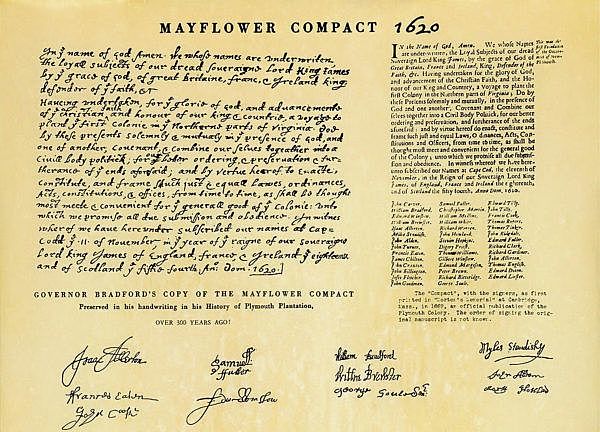 MAYFLOWER COMPACT 1620
In ye name of god Amen. We whose names are underwriten,
the loyall subjects of our dread soveraigne Lord King James
by ye grace of god, of great Britaine, franc, & Ireland king,
defendor of ye faith, &c
Haveing undertaken, for ye glorie of god, and advancemente
of ye christian, and honour of our king & countrie, a voyage to
plant ye first colony in ye Northerne parts of Virginia. Doe
by these presents solemnly & mutualy in ye presence of god, and
one of another, covenant, & combine our selves togeather into a
Civill body politick, for ye better ordering, & preservation & fur-
therance of ye ends aforesaid; and by vertue hereof to enacte,
constitute, and frame such just & equall Lawes, ordinances,
Acts, constitutions, & offices, from time to time, as shall be thought
most meete & convenient for ye generall good of ye Colonie: unto
which we promise all due submission and obedience. In witnes
wherof we have hereunder subscribed our names at Cape
Codd ye .11. of November, in ye year of ye raigne of our soveraigne
Lord king James of England, france, & Ireland ye eighteenth
and of Scotland ye fiftie fourth. An: Dom. 1620.
GOVERNOR BRADFORD'S COPY OF THE MAYFLOWER COMPACT
Preserved in his handwriting in his History of Plymouth Plantation,
OVER 300 YEARS AGO!
IN the Name of God, Amen. We whose Names
are under-written, the Loyal Subjects of our dread
Sovereign Lord King James, by the grace of God of
Great Britain, France and Ireland, King, Defendor of the
Faith, &c. Having undertaken for the glory of God,
and advancement of the Christian Faith, and the Ho-
nour of our King and Countrey, a Voyage to plant the
first Colony in the Northern parts of Virginia; Do by
these Presents solemnly and mutually, in the presence of
God and one another, Covenant and Combine our
selves together into a Civil Body Politick, for our better
ordering and preservation, and furtherance of the ends
aforesaid: and by virtue hereof do enact, constitute and
frame such just and equal Laws, Ordinances, Acts, Con-
stitutions and Officers, from time to time, as shall be
thought most meet and convenient for the general good
of the Colony; unto which we promise all due submis-
sion and obedience. In witness whereof we have here-
unto subscribed our Names at Cape Cod, the eleventh of
November, in the Reign of our Sovereign Lord King
James, of England, France and Ireland the eighteenth,
and of Scotland the fifty fourth, Anno Dom. 1620.
John Carver, Samuel Fuller, Edward Tilly,
William Bradford, Christopher Martin, John Tilly,
Edward Winslow, William Mullins, Francis Cook,
William Brewster, William White, Thomas Rogers,
Isaac Allerton, Richard Warren, Thomas Tinker,
Miles Standish, John Howland, John Ridgdale,
John Alden, Steven Hopkins, Edward Fuller,
John Turner, Digery Priest, Richard Clark,
Francis Eaton, Thomas Williams, Richard Gardiner,
James Chilton, Gilbert Winslow, John Allerton,
John Craxton, Edmund Margeson, Thomas English,
John Billington, Peter Brown, Edward Doten,
Joses Fletcher, Richard Bitteridge, Edward Liester.
John Goodman, George Soule,
The "Compact", with the signers, as first
printed in "Morton's Memorial" at Cambridge,
Mass., in 1669, an official publication of the
Plymouth Colony. The order of signing the orig-
inal manuscript is not known.
Isaac Allerton
Samuell
ffuller
William Bradford
Myles Standish
Willm Brewster
John Alden
Francis Eaton
George Soule